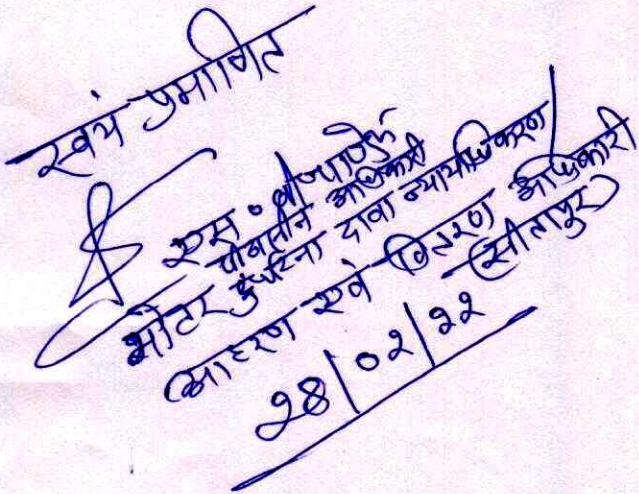 स्वयं प्रमाणित
एस० वी० पाण्डेय
पीठासीन अधिकारी
मोटर दुर्घटना दावा न्यायाधिकरण/
आहरण एवं वितरण अधिकारी
(सीतापुर)
28/02/22